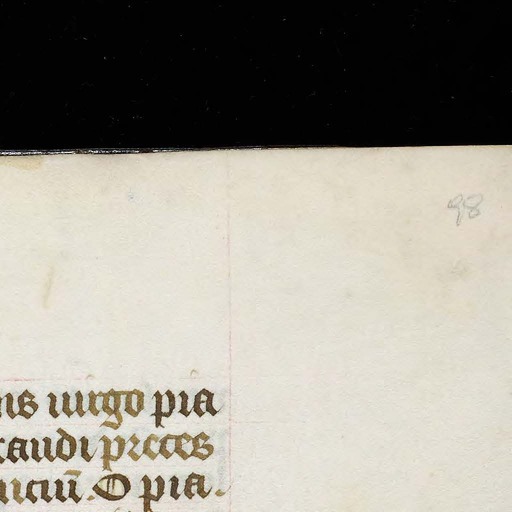 98
ns uirgo pia
xaudi preces
O pia.